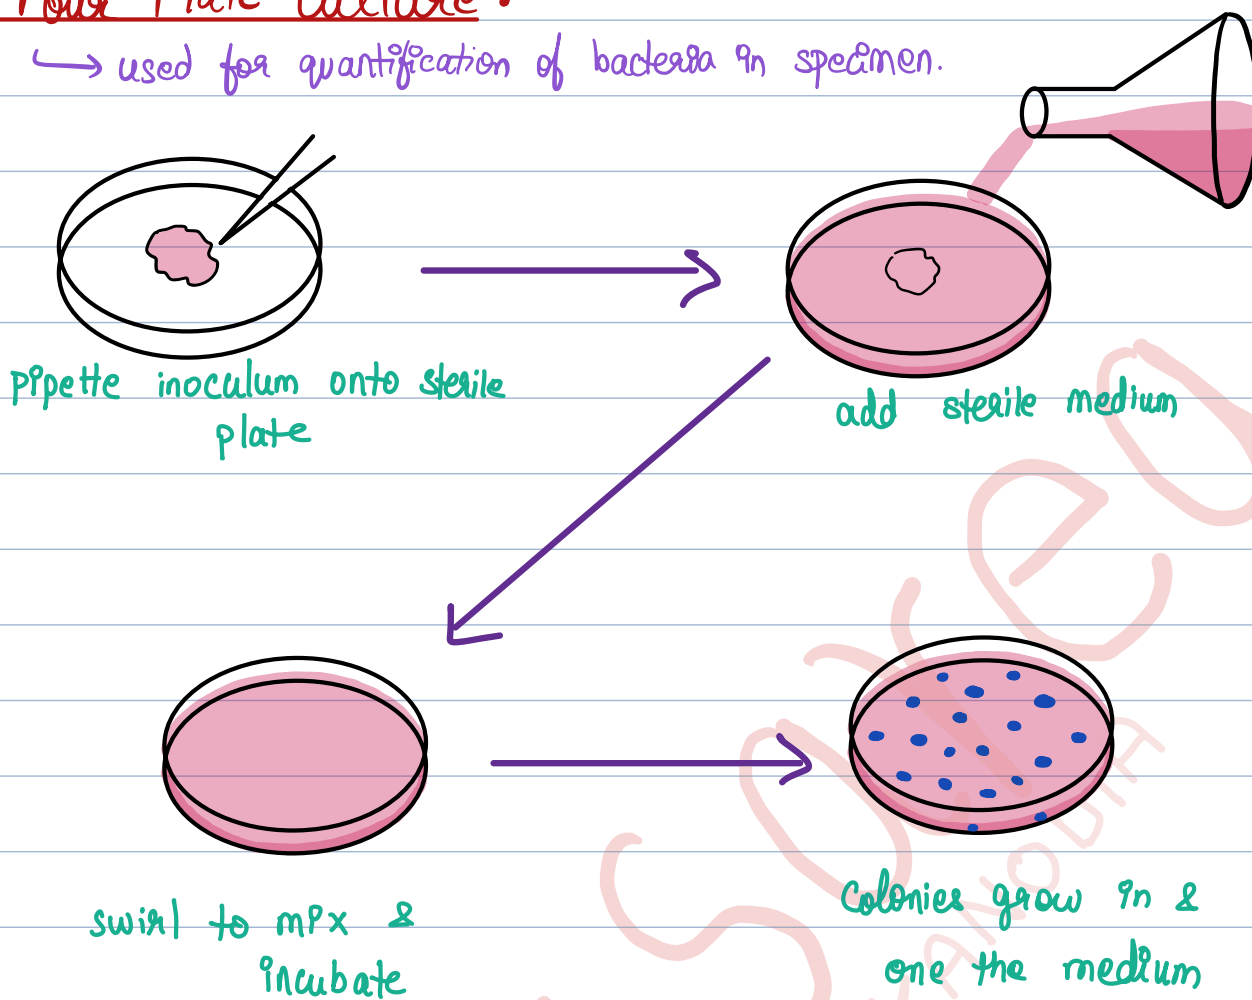 Pour Plate Culture:
↳ used for quantification of bacteria in specimen.
pipette inoculum onto sterile
plate
add sterile medium
swirl to mix &
incubate
Colonies grow in &
one the medium